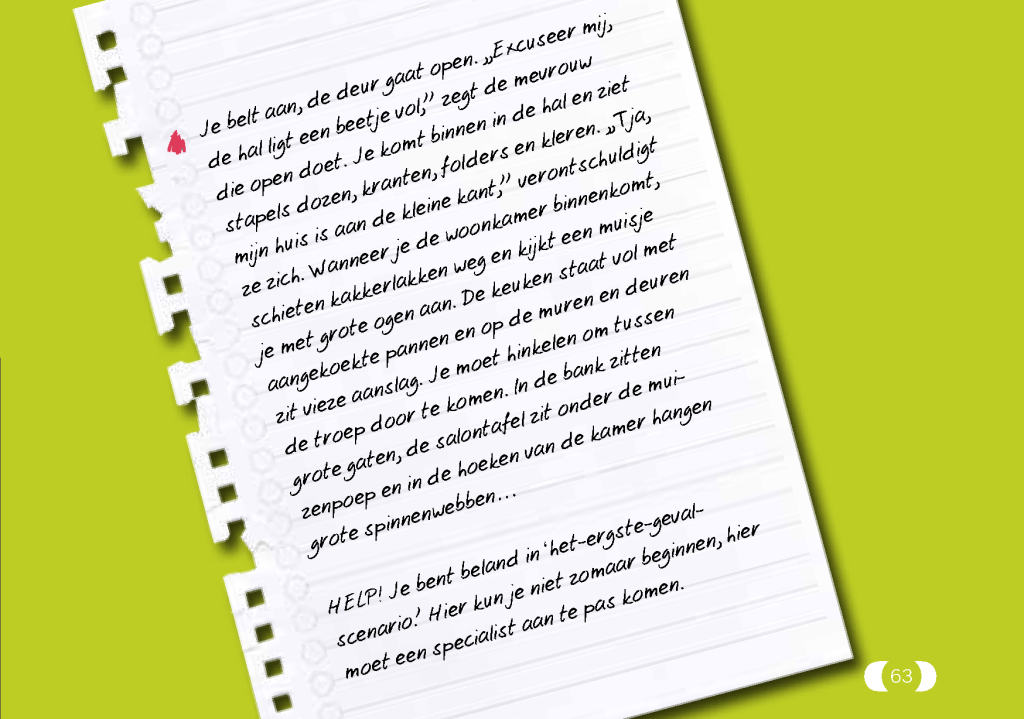 Je belt aan, de deur gaat open. „Excuseer mij,
de hal ligt een beetje vol,” zegt de mevrouw
die open doet. Je komt binnen in de hal en ziet
stapels dozen, kranten, folders en kleren. „Tja,
mijn huis is aan de kleine kant,” verontschuldigt
ze zich. Wanneer je de woonkamer binnenkomt,
schieten kakkerlakken weg en kijkt een muisje
je met grote ogen aan. De keuken staat vol met
aangekoekte pannen en op de muren en deuren
zit vieze aanslag. Je moet hinkelen om tussen
de troep door te komen. In de bank zitten
grote gaten, de salontafel zit onder de mui-
zenpoep en in de hoeken van de kamer hangen
grote spinnenwebben...
HELP! Je bent beland in ‘het-ergste-geval-
scenario’! Hier kun je niet zomaar beginnen, hier
moet een specialist aan te pas komen.
63